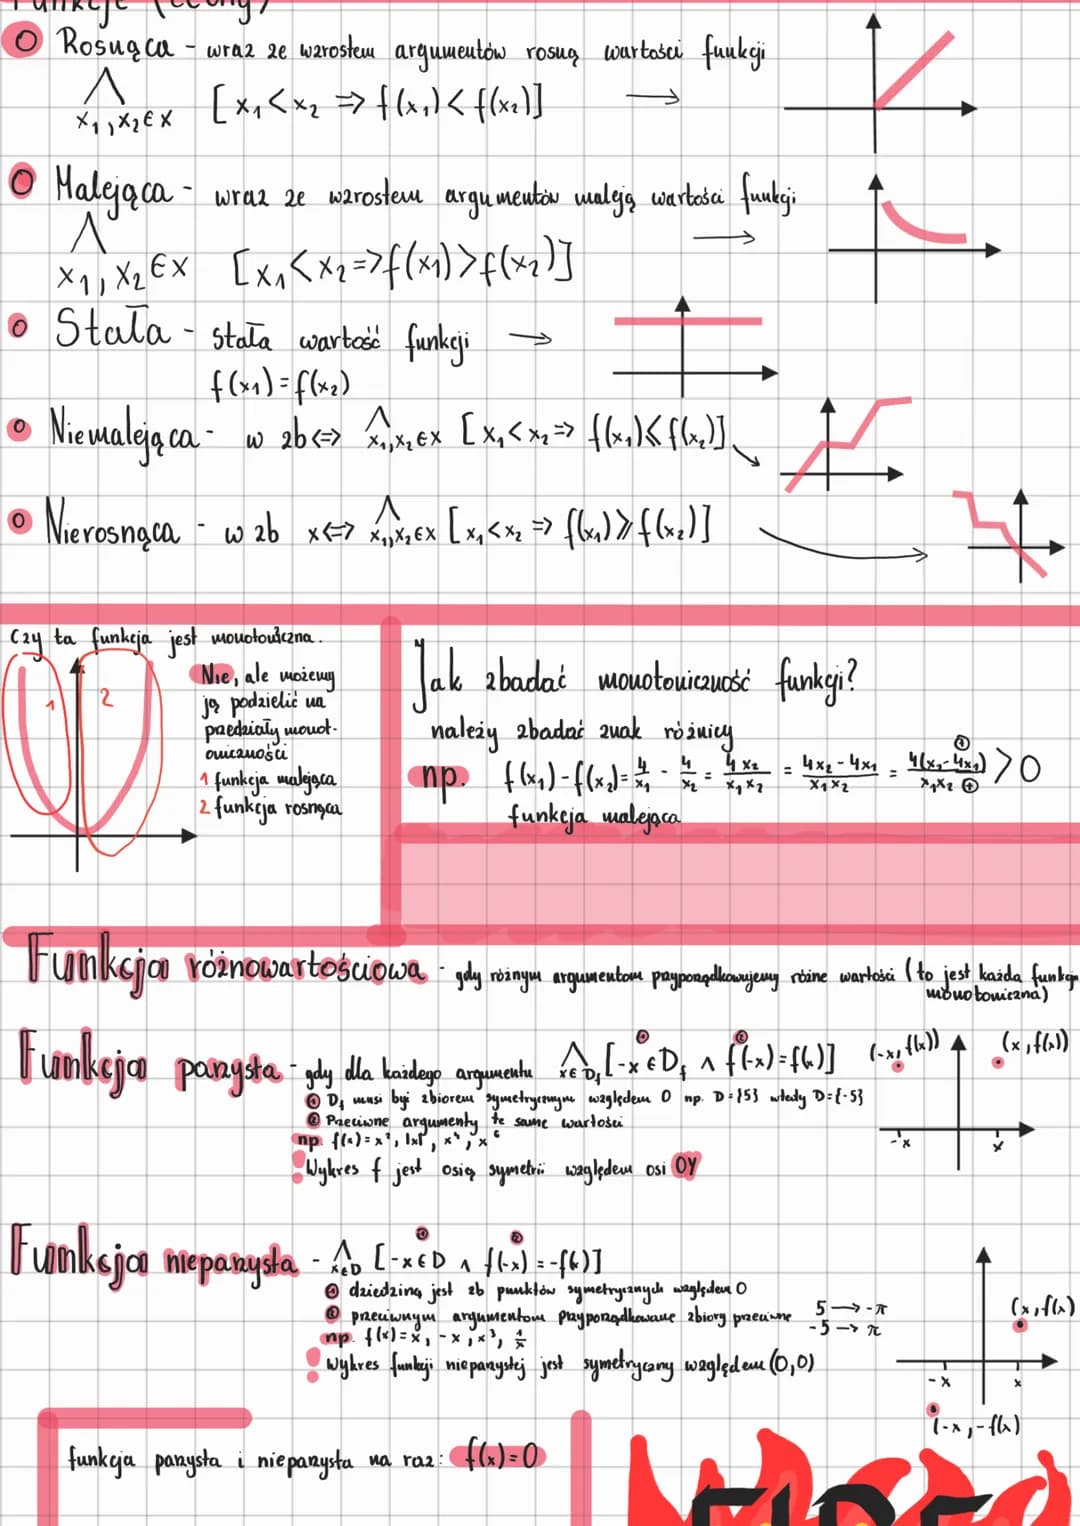 Funkcje (cechy)
Rosnąca - wraz ze wzrostem argumentów rosną wartości funkcji
⋀ x₁,x₂∈X [x₁<x₂ ⇒ f(x₁)<f(x₂)] →
Malejąca - wraz ze wzrostem argumentów maleją wartości funkcji
⋀ x₁,x₂∈X [x₁<x₂=>f(x₁)>f(x₂)] →
Stała - stała wartość funkcji →
f(x₁)=f(x₂)
Niemalejąca - w zb <=> ⋀ x₁,x₂∈X [x₁<x₂=> f(x₁)⩽f(x₂)]
Nierosnąca - w zb x<=> ⋀ x₁,x₂∈X [x₁<x₂ => f(x₁)⩾f(x₂)]
Czy ta funkcja jest monotoniczna.
1 2
Nie, ale możemy
ją podzielić na
przedziały monot-
oniczności
1 funkcja malejąca
2 funkcja rosnąca
Jak zbadać monotoniczność funkcji?
należy zbadać znak różnicy
np. f(x₁)-f(x₂)= 4/x₁ - 4/x₂ = 4x₂/x₁x₂ = 4x₂-4x₁/x₁x₂ = 4(x₂-4x₁)⊕/x₁x₂⊕ >0
funkcja malejąca
Funkcja różnowartościowa - gdy różnym argumentom przyporządkowujemy różne wartości (to jest każda funkcja
monotoniczna)
Funkcja parzysta - gdy dla każdego argumentu ⋀ x∈Df [-x∈Df ∧ f(-x)=f(x)]
① Df musi być zbiorem symetrycznym względem 0 np. D={5} wtedy D={-5}
② Przeciwne argumenty te same wartości
np. f(x)=x², |x|, x⁴, x⁶
! Wykres f jest osią symetrii względem osi OY
(-x,f(x)) (x,f(x))
-x x
Funkcja nieparzysta - ⋀ x∈D [-x∈D ∧ f(-x)=-f(x)]
① dziedziną jest zb punktów symetrycznych względem 0
② przeciwnym argumentom przyporządkowane zbiory przeciwne 5→-π
-5→π
np. f(x)=x, -x, x³, 1/x
! Wykres funkcji nieparzystej jest symetryczny względem (0,0)
(x,f(x))
-x x
(-x,-f(x))
funkcja parzysta i nieparzysta na raz: f(x)=0
FIRE